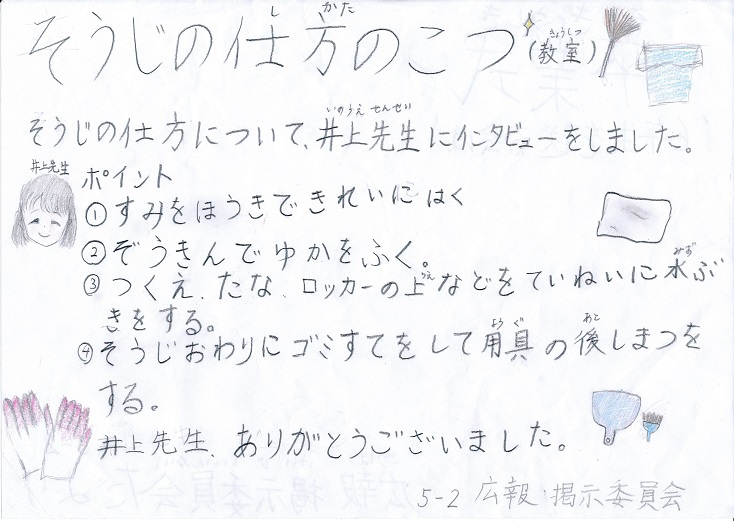 そうじの仕方のこつ(教室)
しかた
きょうしつ
そうじの仕方について、井上先生にインタビューをしました。
いのうえせんせい
井上先生
ポイント
①すみをほうきできれいにはく
②ぞうきんでゆかをふく。
③つくえ、たな、ロッカーの上などをていねいに水ぶ
うえ
みず
きをする。
④そうじおわりにゴミすてをして用具の後しまつを
ようぐ
あと
する。
井上先生、ありがとうございました。
5-2 広報・掲示委員会